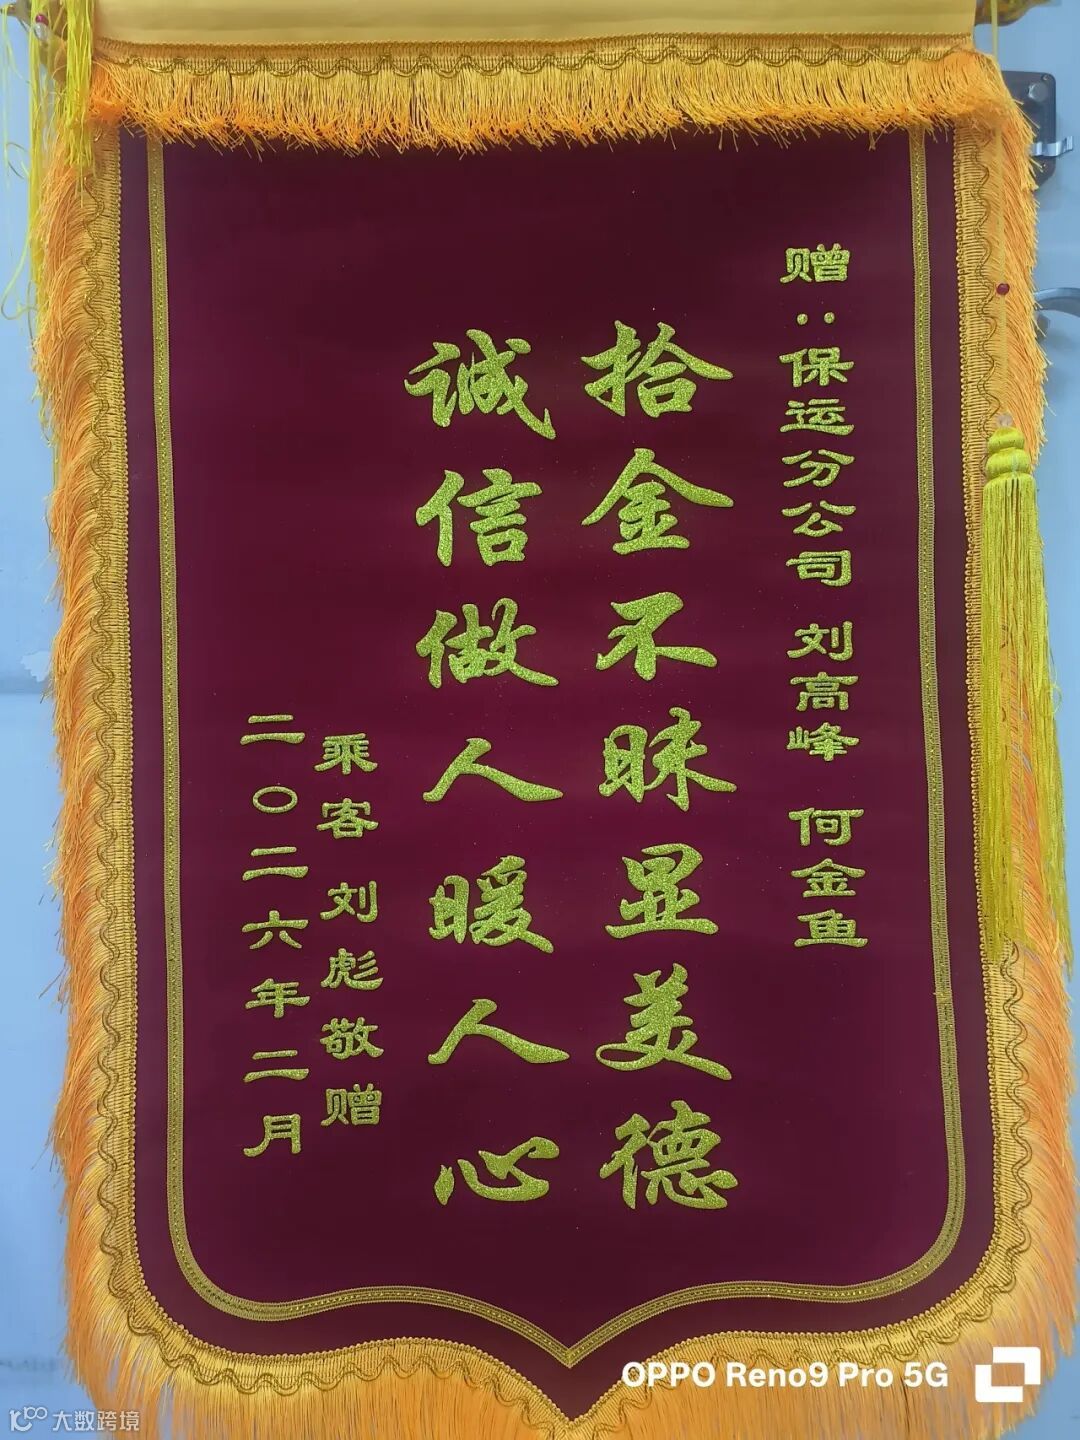 赠：保运分公司 刘高峰 何金鱼
拾金不昧显美德
诚信做人暖人心
乘客 刘彪敬赠
二〇二六年二月
OPPO Reno9 Pro 5G
大数跨境